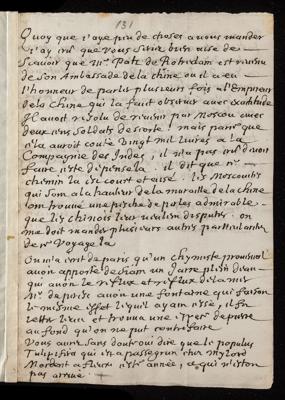 131
Quoy que i'aye peu de choses a vous mander
i'ay cru que vous seriez bien aise de
scavoir que Mr. Pats de Rotredam est revenu
de son Ambassade de la chine ou il a eu
l'honneur de parler plusieurs fois a l'Empereur
de la Chine qui la fait observer avec exactitude
Il avoit resolu de revenir par Moscou avec
deux cens soldats descorte ! mais parce que
cela auroit couté vingt mil livres a la
Compagnie des Indes, il n'a pas
faire cete dépense la . il dit que
chemin la est court et aisé . les Moscovites
qui sont a la hauteur de la muraille de la chine
ont trouué une pesche de perles admirable
que les chinois leur veulent disputer . on
me doit mander plusieurs autres particularitez
de ce Voyage la
On m'a écrit de paris qu'un chymiste
avoit apporté un Jarre plein d'eau
qui avoit le reflux et reflux de la mer
Mr. de avoit une fontaine qui faisoit
le mesme effet lequel ayant cessé, il fit
et trouva une pierre
au fond qu'on ne peut contrefaire
Vous aurez sans doute oui dire que le populus
Tulipifera qui est a passegrun chez mylord
Mordant a fleuri cete année, ce qui n'estoit
pas arrivé